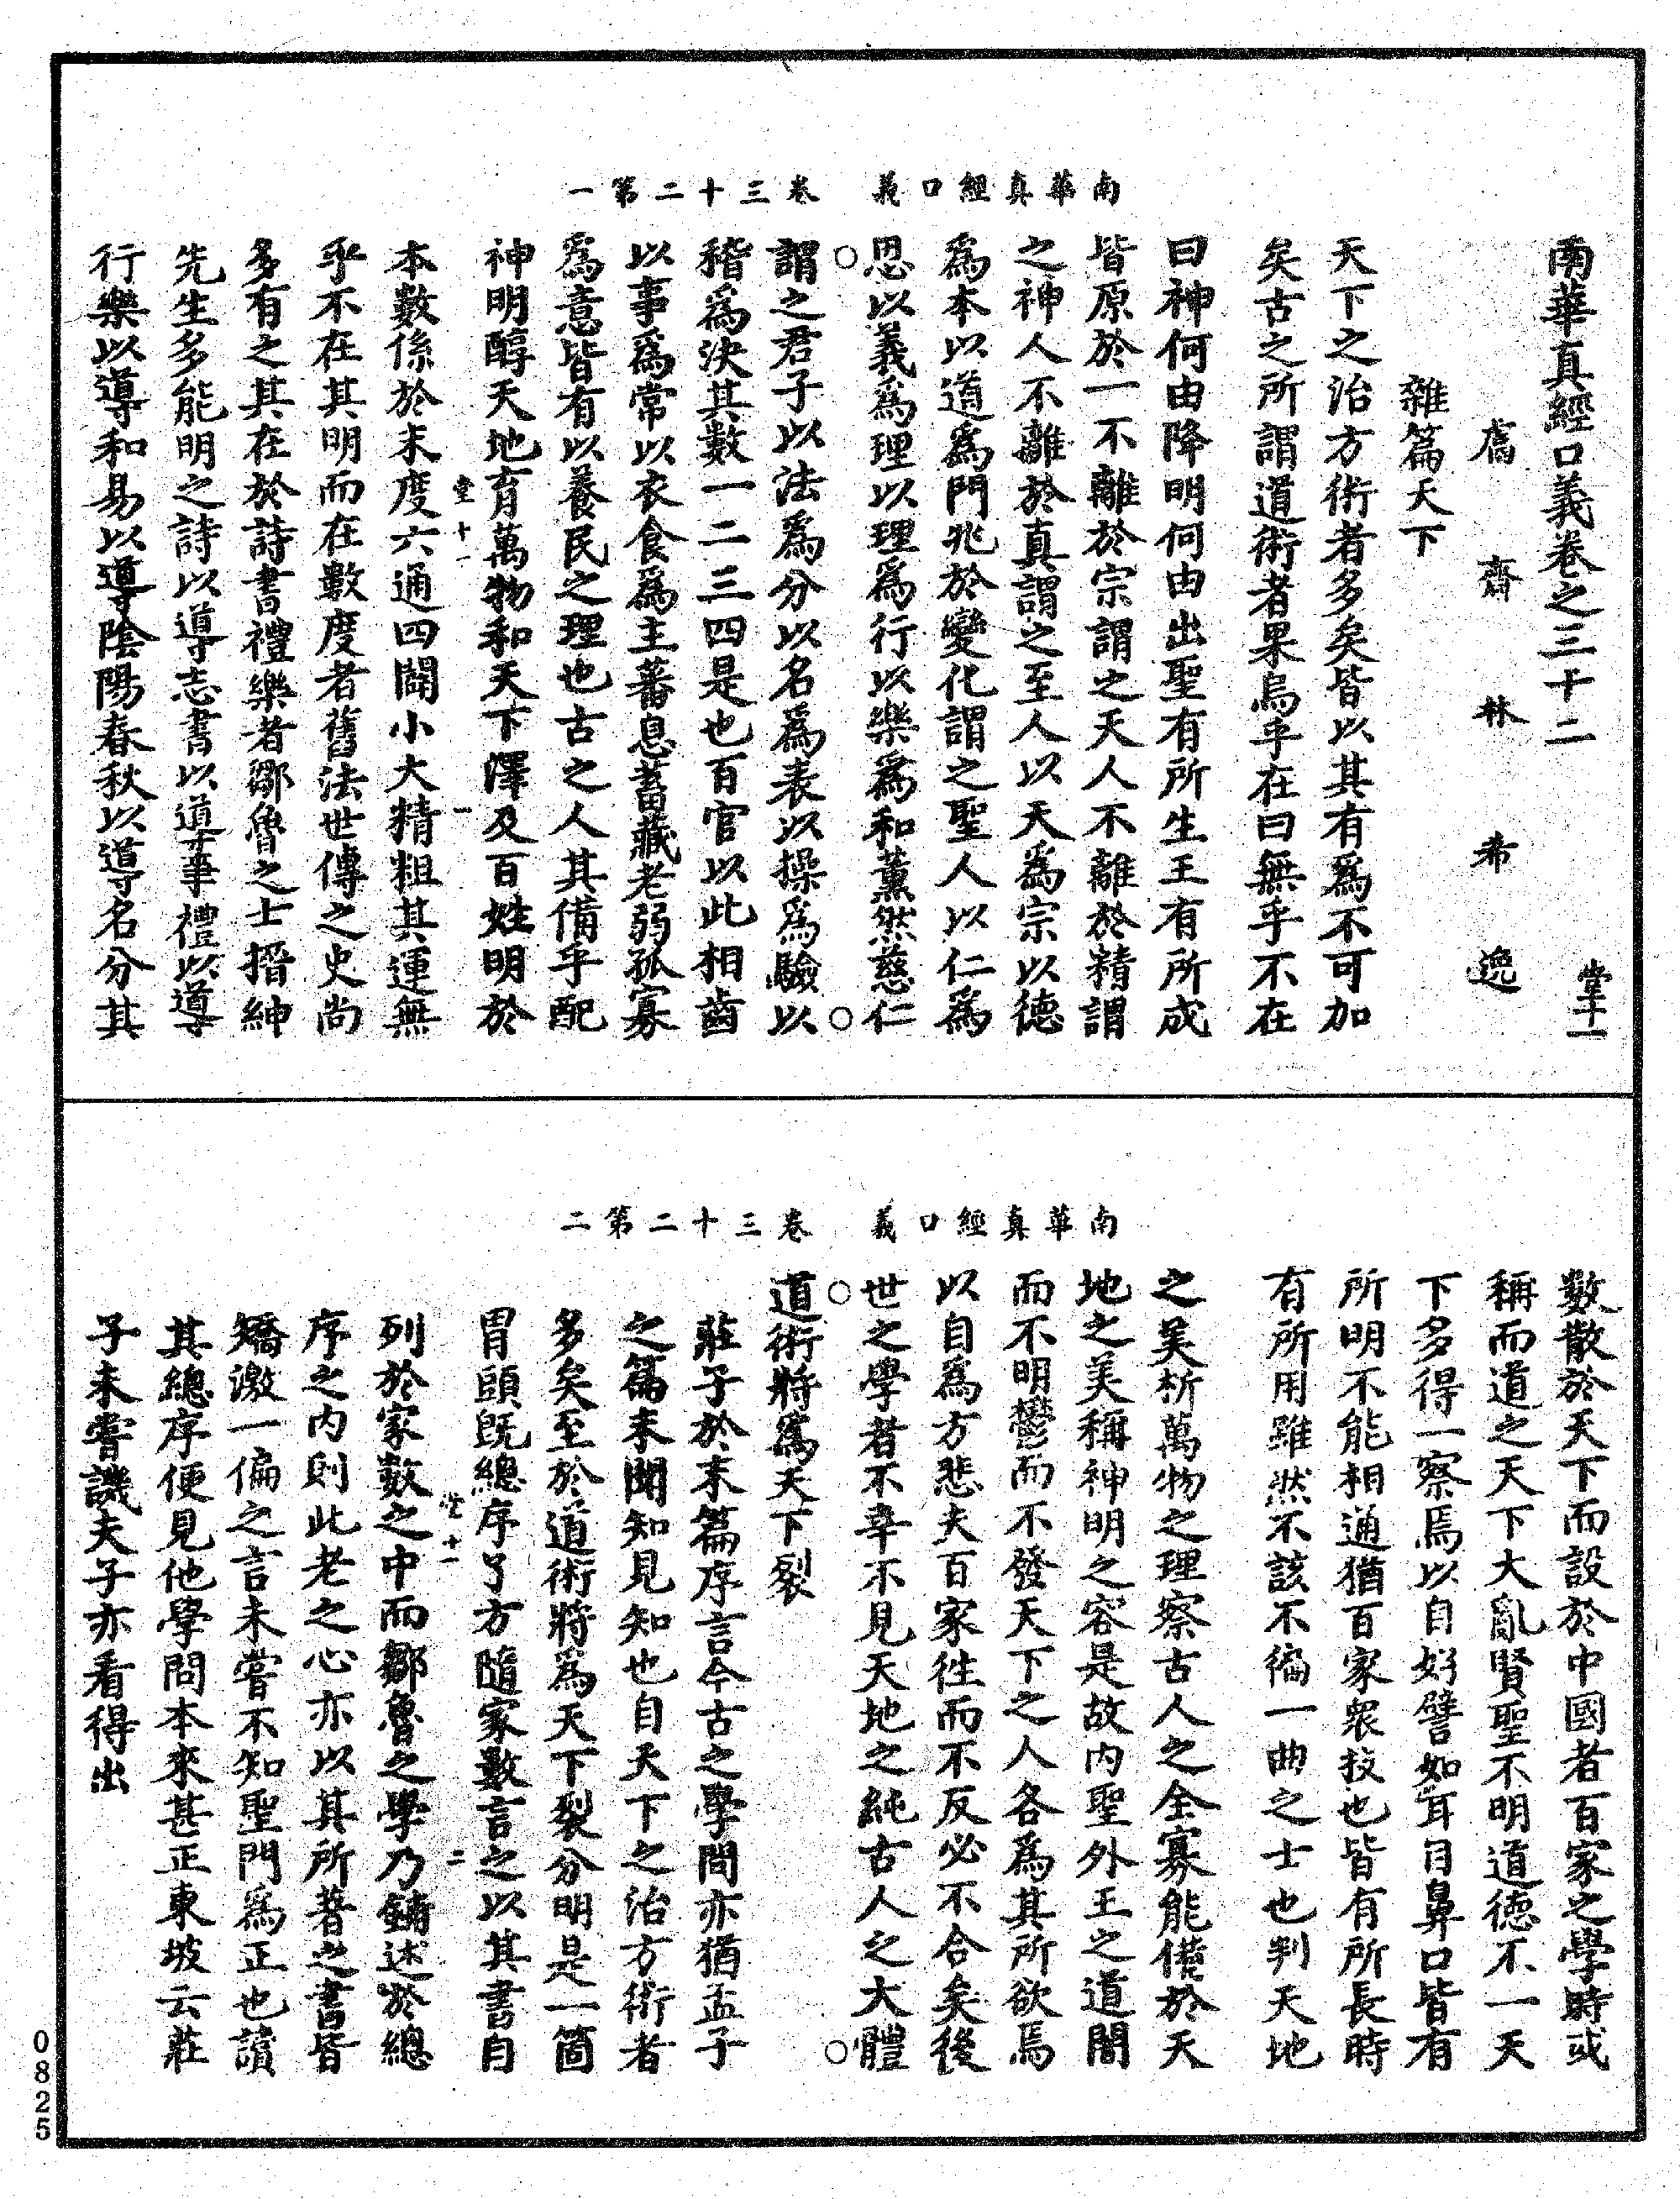 南華真經口義　卷三十二第一
南華真經口義卷之三十二　堂十一
鬳齋林希逸
雜篇天下
天下之治方術者多矣皆以其有為不可加
矣古之所謂道術者果烏乎在曰無乎不在
曰神何由降明何由出聖有所生王有所成
皆原於一不離於宗謂之天人不離於精謂
之神人不離於真謂之至人以天為宗以德
為本以道為門兆於變化謂之聖人以仁為
恩以義為理以理為行以樂為和薰然慈仁
謂之君子以法為分以名為表以操為驗以
稽為決其數一二三四是也百官以此相齒
以事為常以衣食為主蕃息蓄藏老弱孤寡
為意皆有以養民之理也古之人其備乎配
神明醇天地育萬物和天下澤及百姓明於
堂十一　一
本數係於末度六通四闢小大精粗其運無
乎不在其明而在數度者舊法世傳之史尚
多有之其在於詩書禮樂者鄒魯之士搢紳
先生多能明之詩以導志書以導事禮以導
行樂以導和易以導陰陽春秋以導名分其
南華真經口義　卷三十二第二
數散於天下而設於中國者百家之學時或
稱而道之天下大亂賢聖不明道德不一天
下多得一察焉以自好譬如耳目鼻口皆有
所明不能相通猶百家眾技也皆有所長時
有所用雖然不該不徧一曲之士也判天地
之美析萬物之理察古人之全寡能備於天
地之美稱神明之容是故內聖外王之道闇
而不明鬱而不發天下之人各為其所欲焉
以自為方悲夫百家徃而不反必不合矣後
世之學者不幸不見天地之純古人之大體
道術將為天下裂
莊子於末篇序言今古之學問亦猶孟子
之篇末聞知見知也自天下之治方術者
多矣至於道術將為天下裂分明是一箇
冒頭既總序了方隨家數言之以其書自
堂十一　二
列於家數之中而鄒魯之學乃鋪述於總
序之內則此老之心亦以其所著之書皆
矯激一偏之言未嘗不知聖門為正也讀
其總序便見他學問本來甚正東坡云莊
子未嘗譏夫子亦看得出
0825